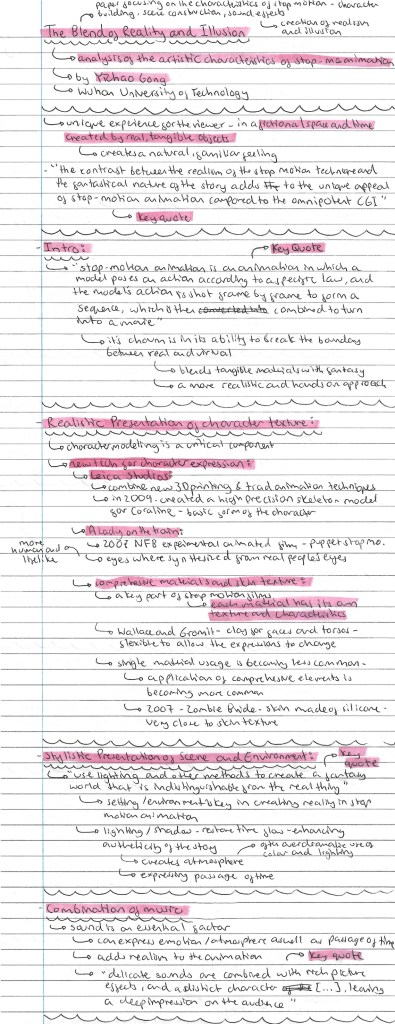 paper focusing on the characteristics of stop motion - character
building, scene construction, sound effects
creation of realism
and illusion
The Blend of Reality and Illusion
analysis of the artistic characteristics of stop-mo animation
by Yichao Gong
Wuhan University of Technology
unique experience for the viewer - in a fictional space and time
created by real, tangible objects
creates a natural, familiar feeling
- "the contrast between the realism of the stop motion technique and
the fantastical nature of the story adds to the unique appeal
of stop-motion animation compared to the omnipotent CGI"
Key quote
- Intro:
Key Quote
"stop-motion animation is an animation in which a
model poses an action according to a specific law, and
the model's action is shot frame by frame to form a
sequence, which is then converted into combined to turn
into a movie"
it's charm is in its ability to break the boundary
between real and virtual
blends tangible materials with fantasy
a more realistic and hands on approach
- Realistic Presentation of character texture:
character modeling is a critical component
new tech for character expression:
Leica Studios:
combine new 3D printing & trad animation techniques
in 2009 - created a high precision skeleton model
for Coraline - basic form of the character
A lady on the train:
more
human and
lifelike
2007 NFB experimental animated film - puppet stop mo.
eyes where synthesized from real people's eyes
comprehesive materials and skin texture:
a key part of stop motion films
each material has its own
texture and characteristics
Wallace and Gromit - clay for faces and torsos -
flexible to allow the expressions to change
single material usage is becoming less common -
application of comprehesive elements is
becoming more common
2007 - Zombie Bride - skin made of silicone -
very close to skin texture
- Stylistic Presentation of Scene and Environment:
Key
quote
"use lighting and other methods to create a fantasy
world that is indistinguishable from the real thing"
setting/environment is key in creating reality in stop
motion animation
lighting / shadow - restore time flow - enhancing
authenticity of the story
often overdramatic use of
color and lighting
creates atmosphere
expressing passage of time
- Combination of music
sound is an essential factor
can express emotion/atmosphere as well as passage of time
adds realism to the animation
Key quote
"delicate sounds are combined with rich picture
effects, and a distinct character [...], leaving
a deep impression on the audience"